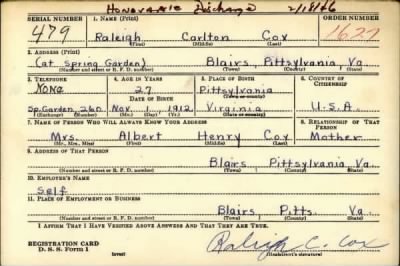 Honorable Discharge 2/18/46
SERIAL NUMBER 1. NAME (Print) ORDER NUMBER
479 Raleigh Carlton Cox 1627
(First) (Middle) (Last)
2. ADDRESS (Print)
(at Spring Garden) Blairs, Pittsylvania Va.
(Number and street or R. F. D. number) (Town) (County) (State)
3. TELEPHONE 4. AGE IN YEARS 5. PLACE OF BIRTH 6. COUNTRY OF CITIZENSHIP
None 27 Pittsylvania
DATE OF BIRTH (Town or county)
Sp. Garden, 260 Nov. 1, 1912 Virginia U.S.A.
(Exchange) (Number) (Mo.) (Day) (Yr.) (State or country)
7. NAME OF PERSON WHO WILL ALWAYS KNOW YOUR ADDRESS 8. RELATIONSHIP OF THAT PERSON
Mrs. Albert Henry Cox Mother
(Mr., Mrs., Miss) (First) (Middle) (Last)
9. ADDRESS OF THAT PERSON
Blairs, Pittsylvania, Va.
(Number and street or R. F. D. number) (Town) (County) (State)
10. EMPLOYER'S NAME
Self
11. PLACE OF EMPLOYMENT OR BUSINESS
Blairs, Pitts. Va.
(Number and street or R. F. D. number) (Town) (County) (State)
I AFFIRM THAT I HAVE VERIFIED ABOVE ANSWERS AND THAT THEY ARE TRUE.
REGISTRATION CARD
D. S. S. Form 1 Raleigh C. Cox
(Registrant's signature)